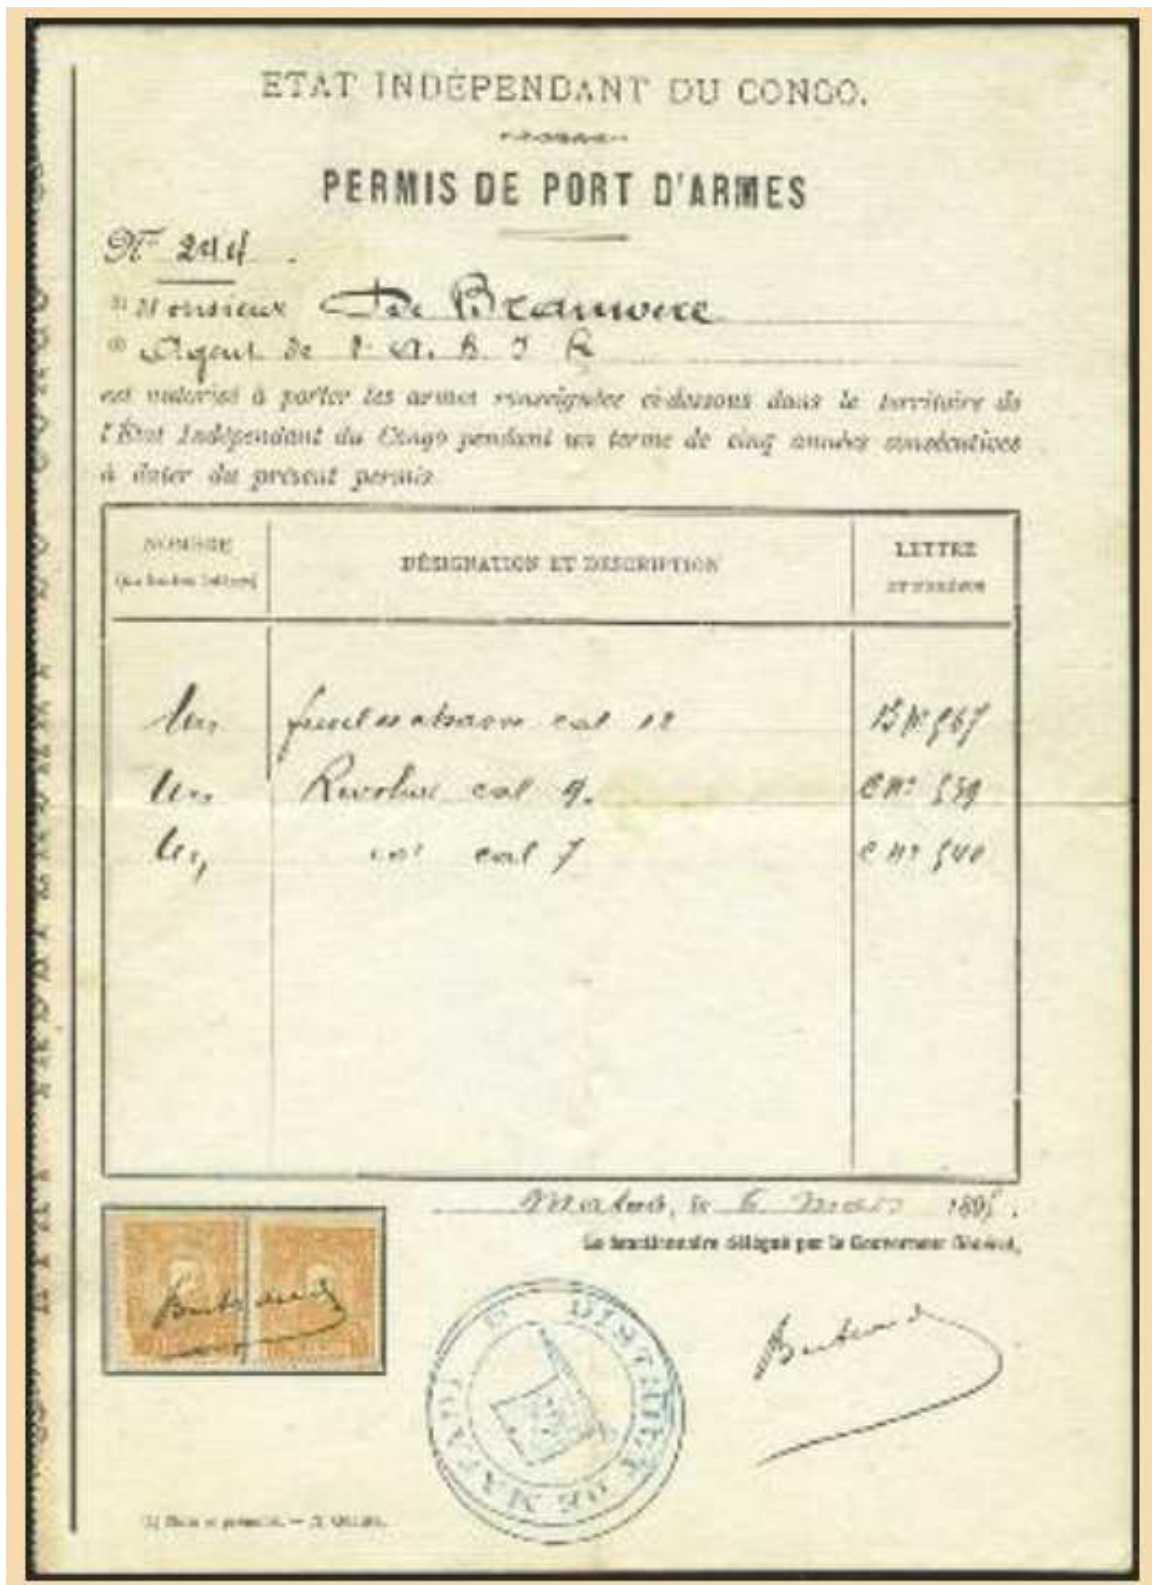 ETAT INDÉPENDANT DU CONGO.
PERMIS DE PORT D'ARMES
Nº 244
(1) Monsieur De Brauwere
(2) Agent de l'A. B. I R
est autorisé à porter les armes renseignées ci-dessous dans le territoire de
l'État Indépendant du Congo pendant un terme de cinq années consécutives
à dater du présent permis.
NOMBRE
(En toutes lettres)
DÉSIGNATION ET DESCRIPTION
LETTRE
ET NUMÉRO
Un cal 12 B Nº 567
Un Revolver cal 9. C Nº 539
Un cal 7 C Nº 540
Matadi, le 6 mars 189
Le fonctionnaire délégué par le Gouverneur Général,
Bertrand
DISTRICT DE MATADI
Bertrand
(1) Nom et prénoms. — (2) Qualité.